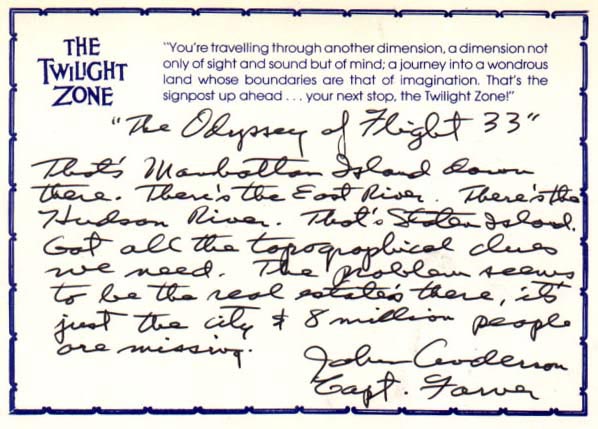 THE
TWILIGHT
ZONE
"You're travelling through another dimension, a dimension not
only of sight and sound but of mind; a journey into a wondrous
land whose boundaries are that of imagination. That's the
signpost up ahead . . . your next stop, the Twilight Zone!"
"The Odyssey of Flight 33"
That's Manhattan Island down
there. There's the East River. There's the
Hudson River. That's Staten Island.
Got all the topographical clues
we need. The problem seems
to be the real estate's there, it's
just the city & 8 million people
are missing.
John Anderson
Capt. Farver